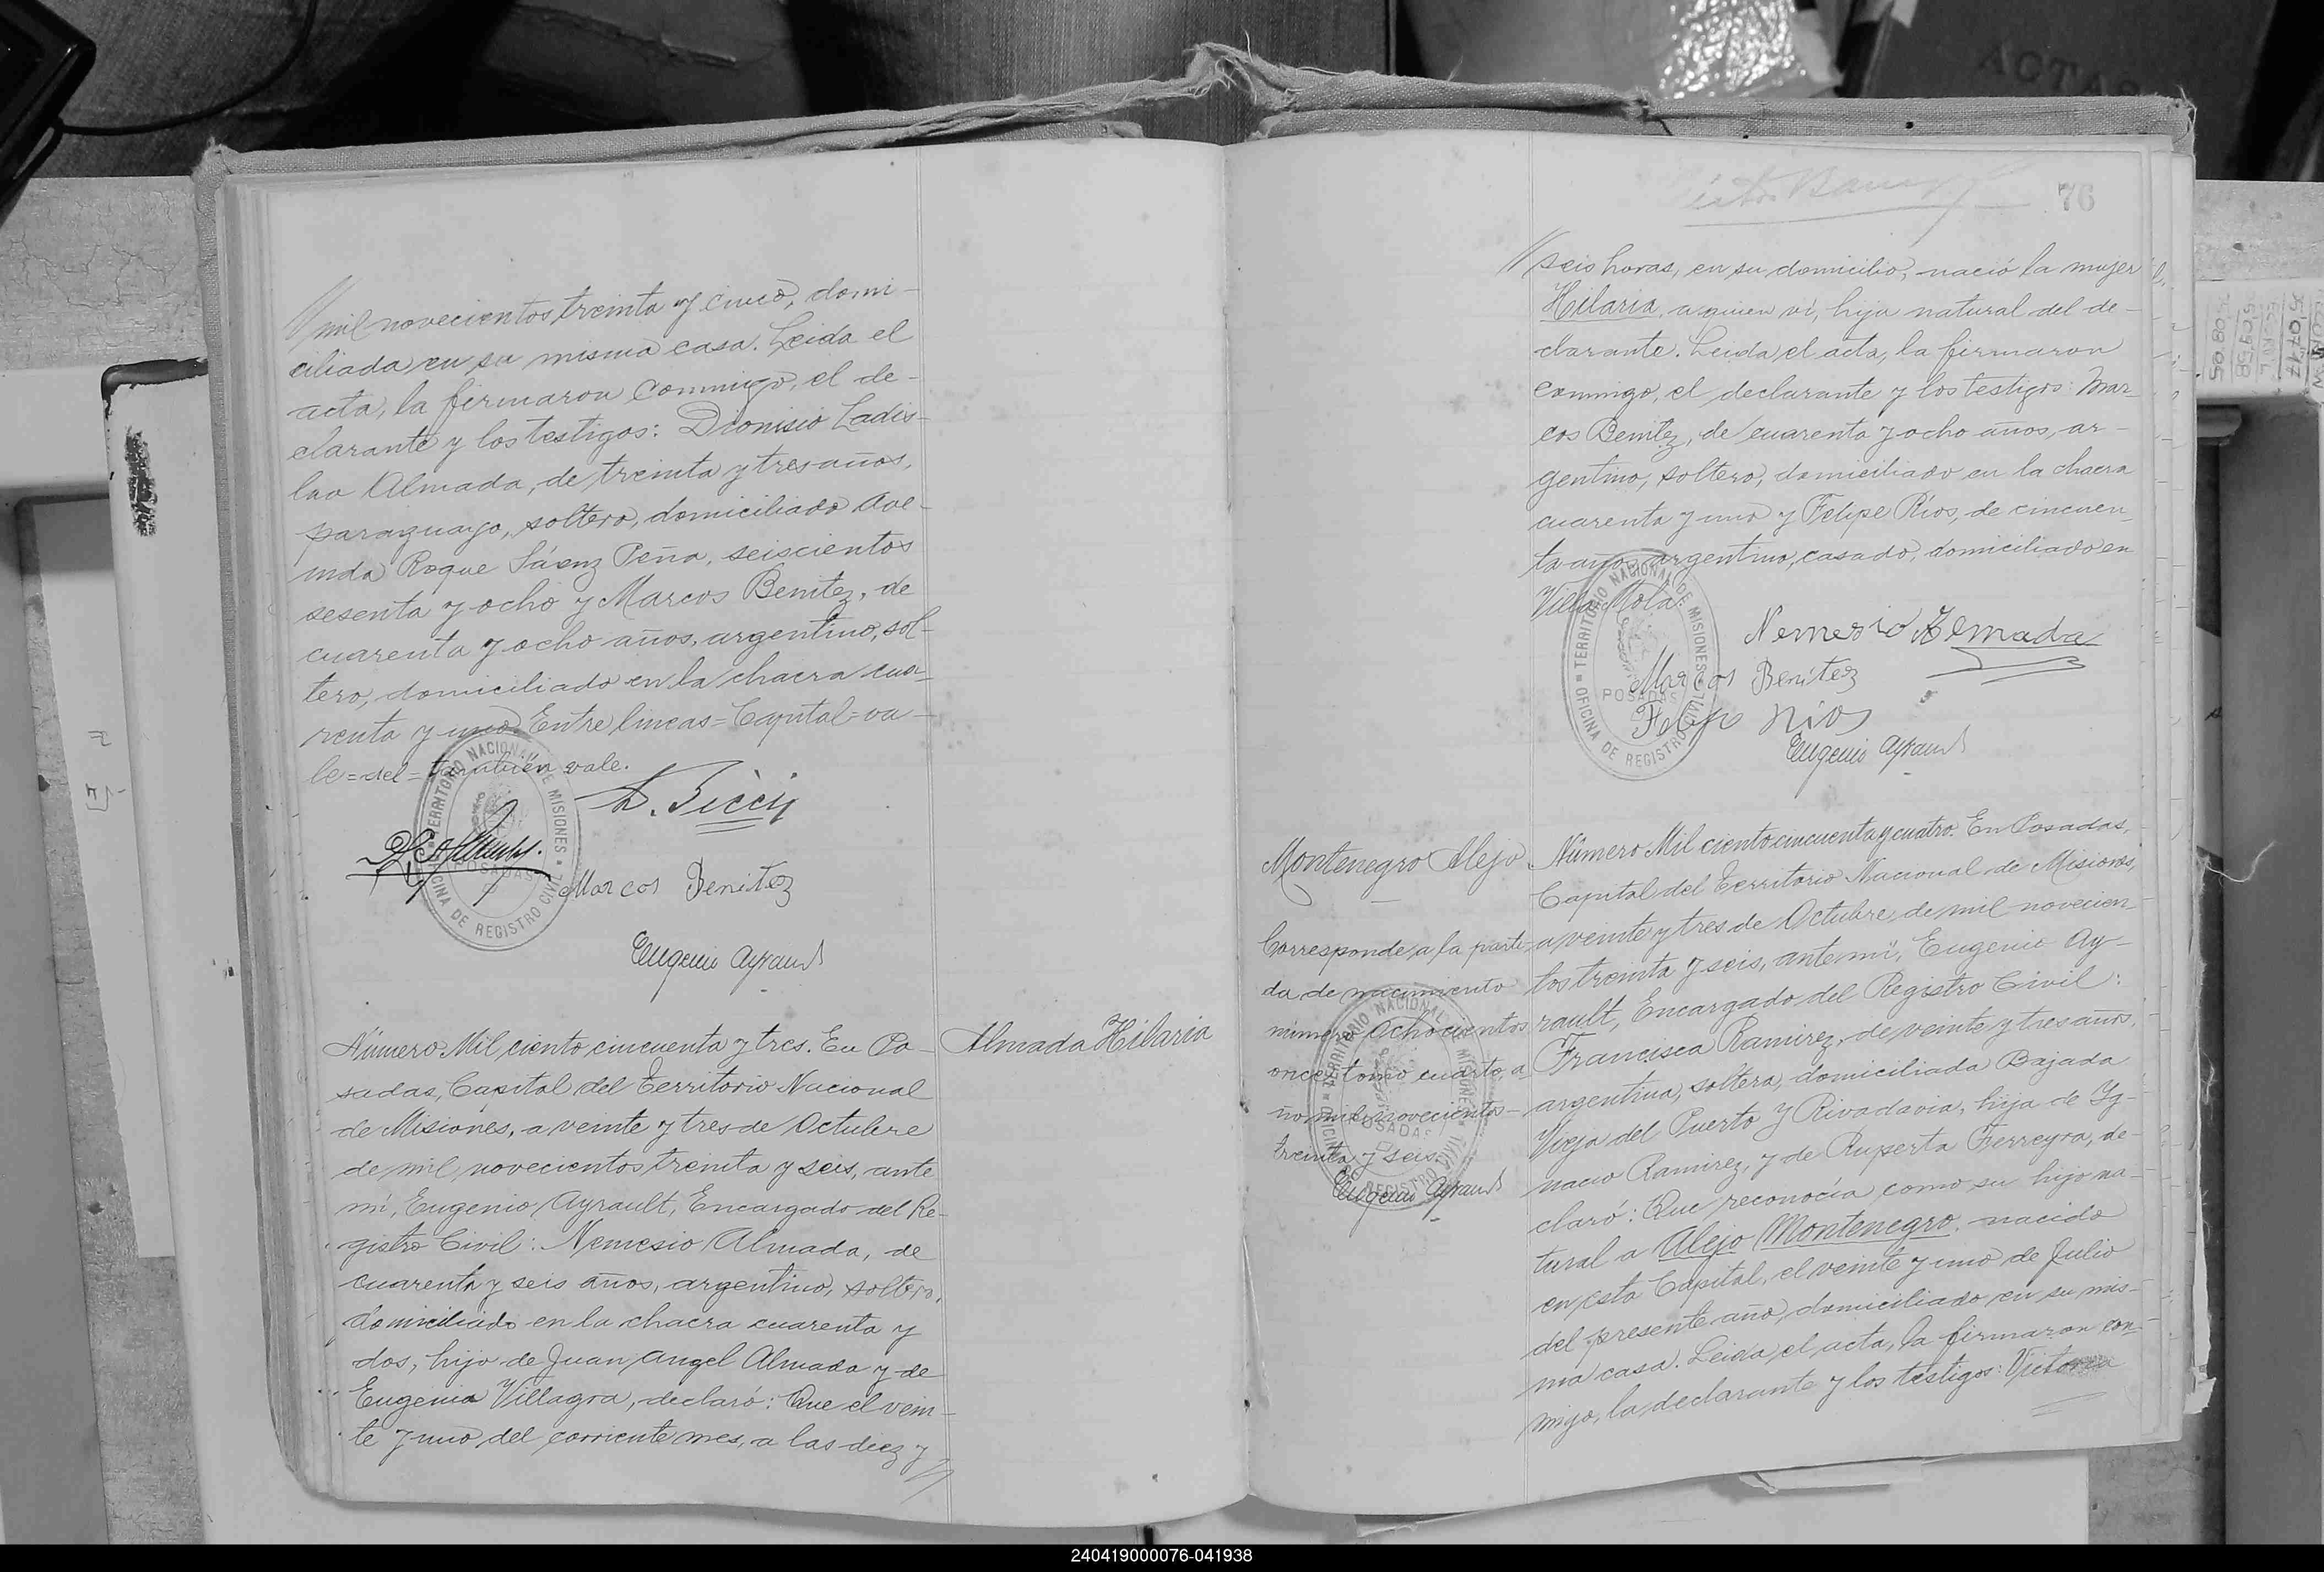 mil novecientos treinta y cinco, domi-
ciliada en su misma casa. Leida el
acta, la firmaron conmigo, el de-
clarante y los testigos: Dionisio Ladis-
lao Almada, de treinta y tres años,
paraguayo, soltero, domiciliado Ave-
nida Roque Sáenz Peña, seiscientos
sesenta y ocho y Marcos Benítez, de
cuarenta y ocho años, argentino, sol-
tero, domiciliado en la chacra cua-
renta y uno. Entre lineas=Capital=va-
le=del=también vale.
Marcos Benitez
Eugenio Ayrault
TERRITORIO NACIONAL DE MISIONES
OFICINA DE REGISTRO CIVIL
POSADAS
Almada Hilaria
Número Mil ciento cincuenta y tres. En Po-
sadas, Capital del Territorio Nacional
de Misiones, a veinte y tres de Octubre
de mil novecientos treinta y seis, ante
mí, Eugenio Ayrault, Encargado del Re-
gistro Civil: Nemesio Almada, de
cuarenta y seis años, argentino, soltero,
domiciliado en la chacra cuarenta y
dos, hijo de Juan Angel Almada y de
Eugenia Villagra, declaró: Que el vein-
te y uno del corriente mes, a las diez y
76
seis horas, en su domicilio, nació la mujer
Hilaria, a quien ví, hija natural del de-
clarante. Leida el acta, la firmaron
conmigo, el declarante y los testigos: Mar-
cos Benítez, de cuarenta y ocho años, ar-
gentino, soltero, domiciliado en la chacra
cuarenta y uno y Felipe Ríos, de cincuen-
ta años, argentino, casado, domiciliado en
Villa Mola.
Nemesio Almada
Marcos Benitez
Felipe Rios
Eugenio Ayrault
TERRITORIO NACIONAL DE MISIONES
OFICINA DE REGISTRO CIVIL
POSADAS
Montenegro Alejo
Corresponde a la parti-
da de nacimiento
número ochocientos
once, tomo cuarto, a-
ño mil novecientos
treinta y seis.
Eugenio Ayrault
TERRITORIO NACIONAL DE MISIONES
OFICINA DE REGISTRO CIVIL
POSADAS
Número Mil ciento cincuenta y cuatro. En Posadas,
Capital del Territorio Nacional de Misiones,
a veinte y tres de Octubre de mil novecien-
tos treinta y seis, ante mí, Eugenio Ay-
rault, Encargado del Registro Civil:
Francisca Ramirez, de veinte y tres años,
argentina, soltera, domiciliada Bajada
Vieja del Puerto y Rivadavia, hija de Ig-
nacio Ramirez, y de Ruperta Ferreyra, de-
claró: Que reconocía como su hijo na-
tural a Alejo Montenegro, nacido
en esta Capital, el veinte y uno de Julio
del presente año, domiciliado en su mis-
ma casa. Leida el acta, la firmaron con-
migo, la declarante y los testigos:
240419000076-041938